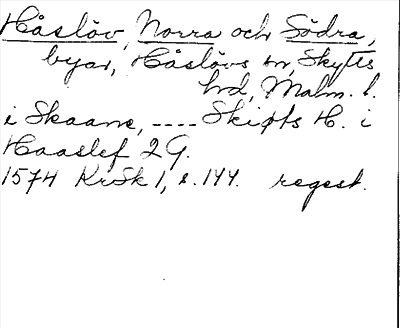 Håslöv, Norra och Södra,
byar, Håslövs sn, Skytts
hd, Malm. l.
i Skaane, ---- Skipts H. i
Haaslef 2 G.
1574 KrSk 1, s. 144. regest.